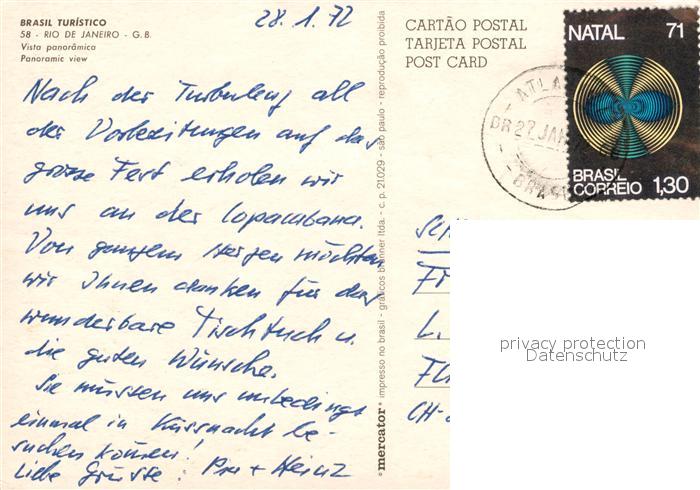 BRASIL TURÍSTICO
58 - RIO DE JANEIRO - G.B.
Vista panorâmica
Panoramic view
28.1.72
Nach der Turbulenz all
der Vorbereitungen auf das
grosse Fest erholen wir
uns an der Copacabana.
Von ganzem Herzen möchten
wir Ihnen danken für das
wunderbare Tischtuch u.
die guten Wünsche.
Sie müssen uns unbedingt
einmal in Küssnacht be-
suchen kommen!
Liebe Grüsse: + Heinz
mercator® impresso no brasil - gráficos brunner ltda. - c.p. 21.029 - são paulo - reprodução proibida
CARTÃO POSTAL
TARJETA POSTAL
POST CARD
NATAL 71
BRASIL
CORREIO 1,30
27 JAN
BRAS
L.
CH-
privacy protection
Datenschutz